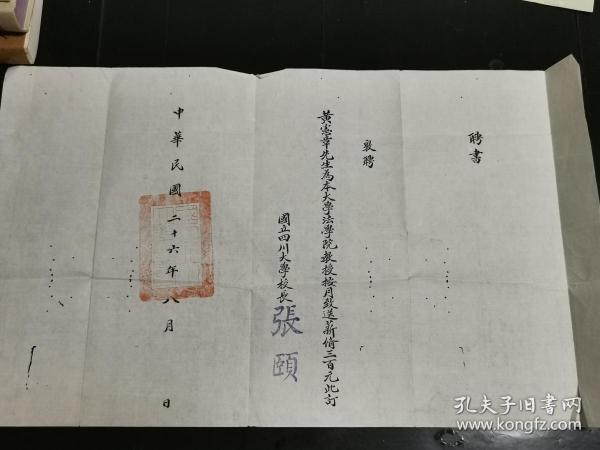 聘書
敦聘
黃憲章先生為本大學法學院教授按月致送薪脩三百元此訂
國立四川大學校長
張頤
中華民國二十六年八月 日
孔夫子旧书网
www.kongfz.com